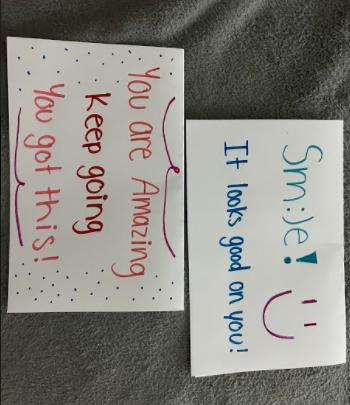 Sm:)e!
It looks good on you!
You are Amazing
Keep going
You got this!